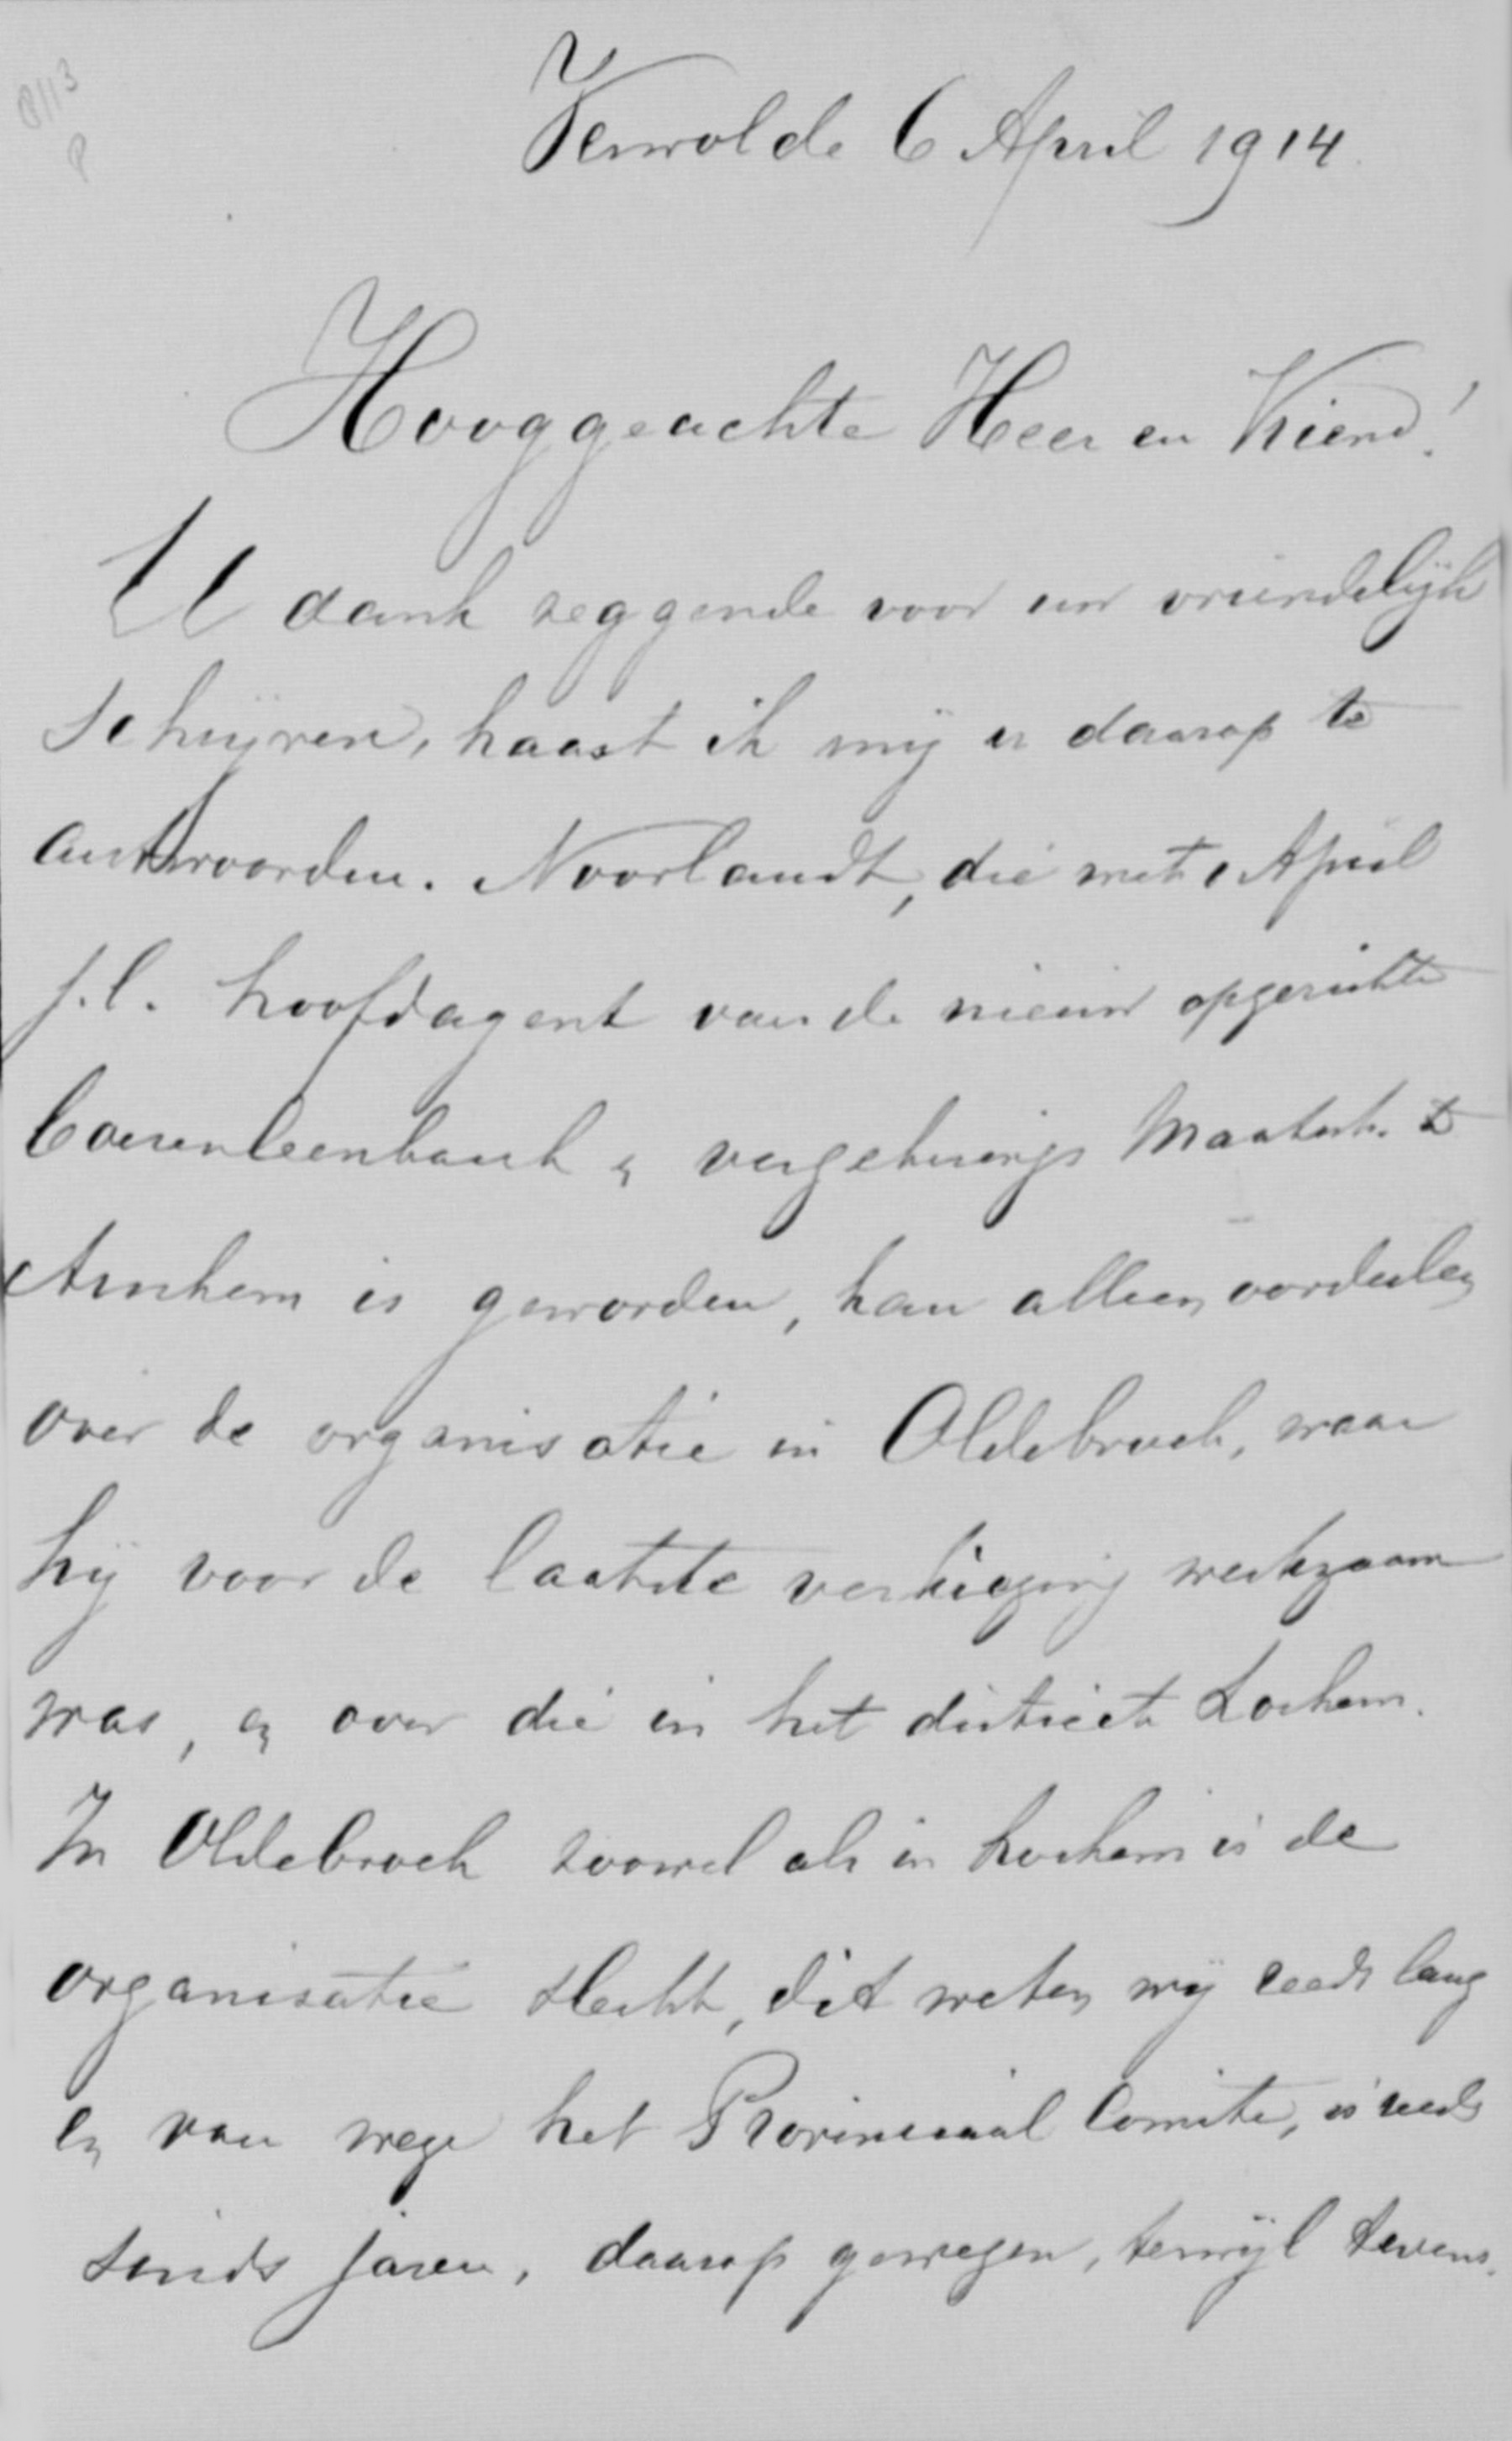 8113
P
Verwolde 6 April 1914.
Hooggeachte Heer en Vriend!
U dank zeggende voor uw vriendelijk
schrijven, haast ik mij u daarop te
antwoorden. Noorlandt, die met 1 April
j.l. hoofdagent van de nieuw opgerichte
Boerenleenbank & Maatsch. te
Arnhem is geworden, kan alleen oordeelen
over de organisatie in Oldebroek, waar
hij voor de laatste verkiezing werkzaam
was, en over die in het district Lochem.
In Oldebroek zoowel als in Lochem is de
organisatie slecht, dit weten wij reeds lang
en van wege het Provinciaal Comite, is reeds
sinds jaren, daarop gewezen, terwijl tevens